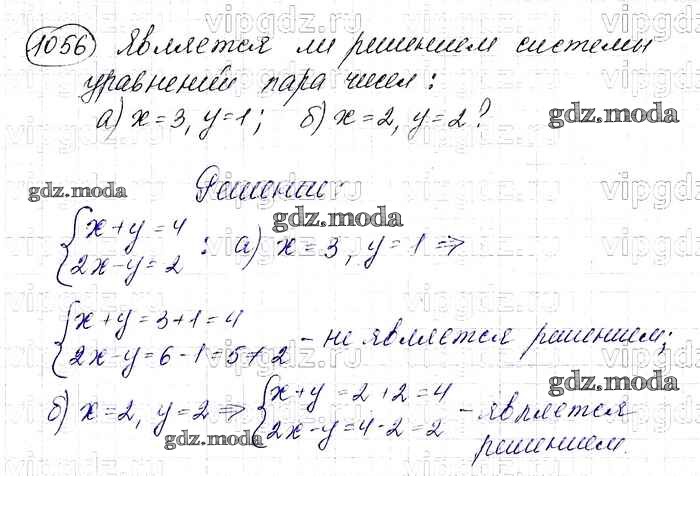 1056 Является ли решением системы
уравнений пара чисел:
а) x=3, y=1; б) x=2, y=2?
gdz.moda
Решение:
gdz.moda
gdz.moda
{x+y=4
2x-y=2 : а) x=3, y=1 ⇒
{x+y=3+1=4
2x-y=6-1=5≠2 - не является решением;
gdz.moda
б) x=2, y=2 ⇒ {x+y=2+2=4
2x-y=4-2=2 - является
решением.
gdz.moda